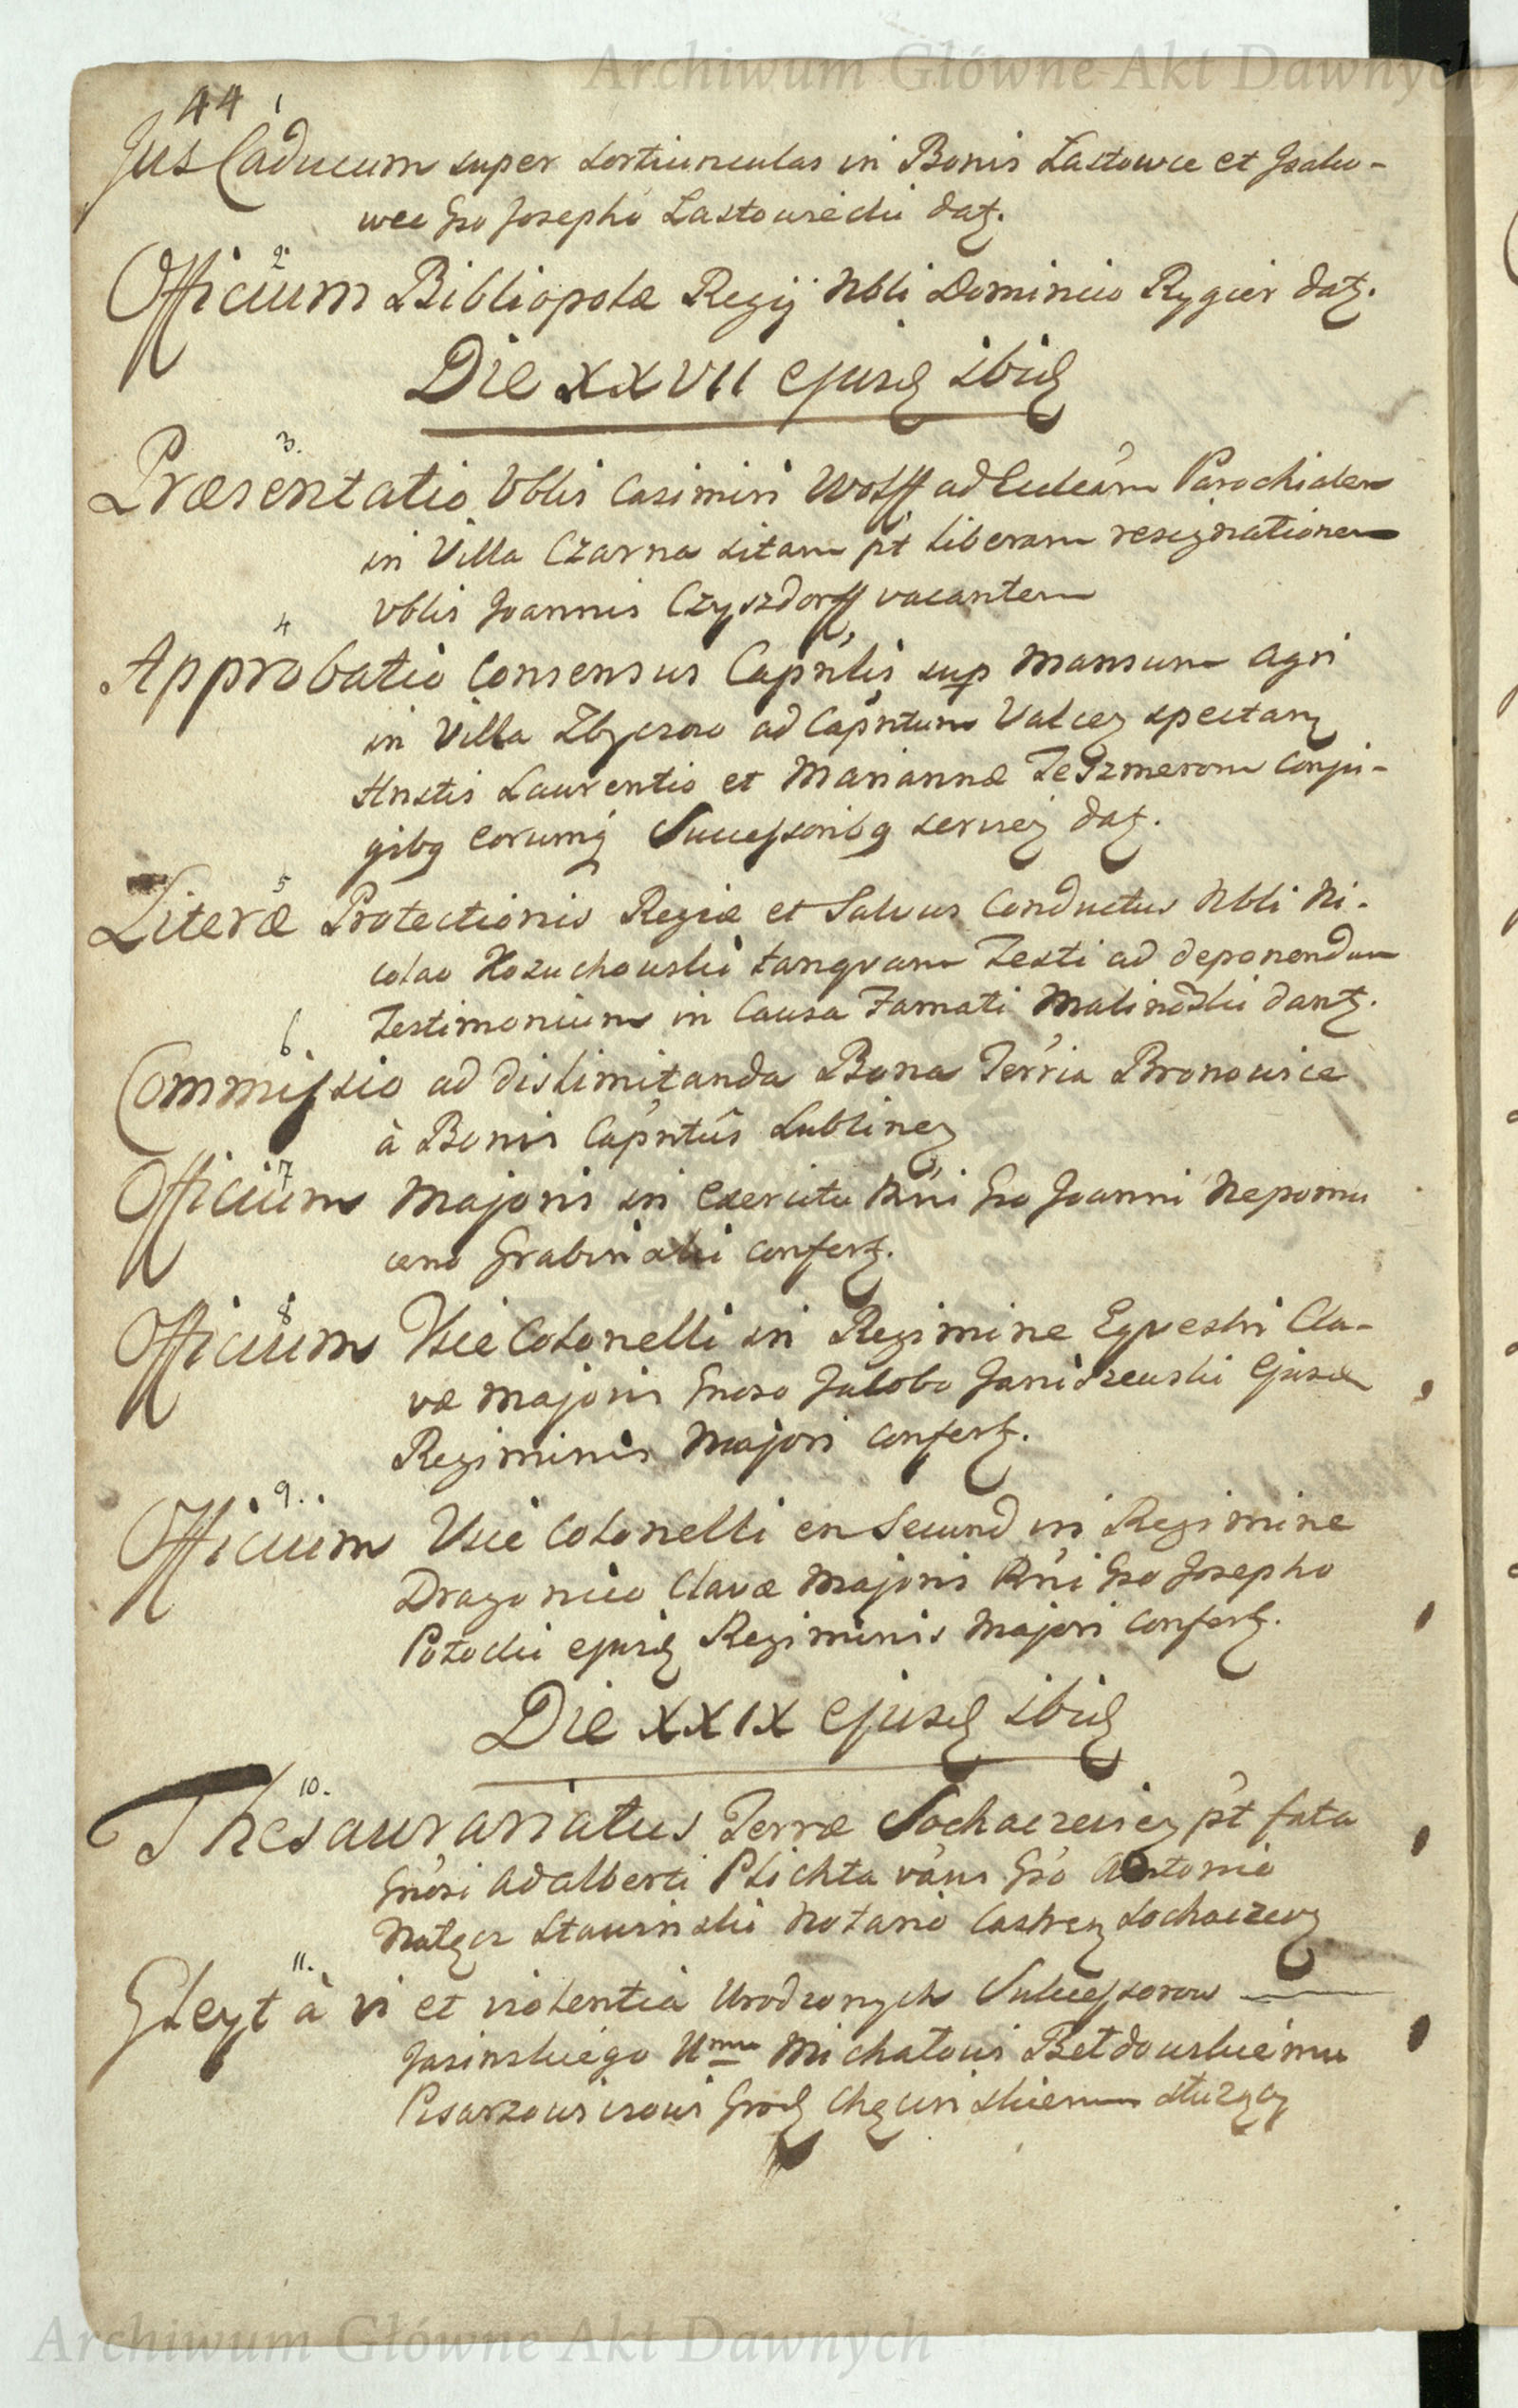 Archiwum Główne Akt Dawnych
44
1
Jus Caducum super sortiunculas in Bonis Łastowce et
wce Gso Josepho Łastowiecki datz.
2.
Officium Bibliopolæ Regij Nbli Dominico Rygier datz.
Die XXVII ejusd ibid
3.
Præsentatio Vblis Casimiri Wolff ad Eccleam Parochialem
in Villa Czarna sitam pt liberam resignationem
Vblis Joannis Czyszdorff vacantem
4
Approbatio Consensus Capitlis sup Mansum Agri
in Villa ad Capntum Valcez spectanz
Hnstis Laurentio et Mariannæ Conju-
gibq eorumq Successoribq serviez datz.
5
Literæ Protectionis Regiæ et Salvus Conductus Nbli Ni-
colao Kozuchowski tanqvam Testi ad deponendum
Testimonium in Causa Famati Malinoski dantz.
6
Commissio ad dislimitanda Bona Terria Bronowice
à Bonis Capntus Lublinez
7
Officium Majoris in Exercitu Rni Gso Joanni Nepomu
ceno Grabinski confertz.
8
Officium Vice Colonelli in Regimine Eqvestri Cla-
væ Majoris Gnoso Jakobo Janiszewski Ejusd
Regiminis Majori confertz.
9.
Officium Vice Colonelli en Secund in Regimine
Dragonico Clavæ Majoris Rni Gso Josepho
Potocki ejusd Regiminis Majori confertz.
Die XXIX ejusd ibid
10.
Thesaurariatus Terræ Sochaczeviez pt fata
Gnosi Adalberti Plichta vans Gso Antonio
Stawinski Notario Castrez Sochaczevz
11.
Gleyt à vi et violentia Urodzonych Sukcessorow
Jasinskiego Umu Michałowi Bełdowskiemu
Pisarzowiczowi Grod Chęcinskiemu służący
Archiwum Główne Akt Dawnych